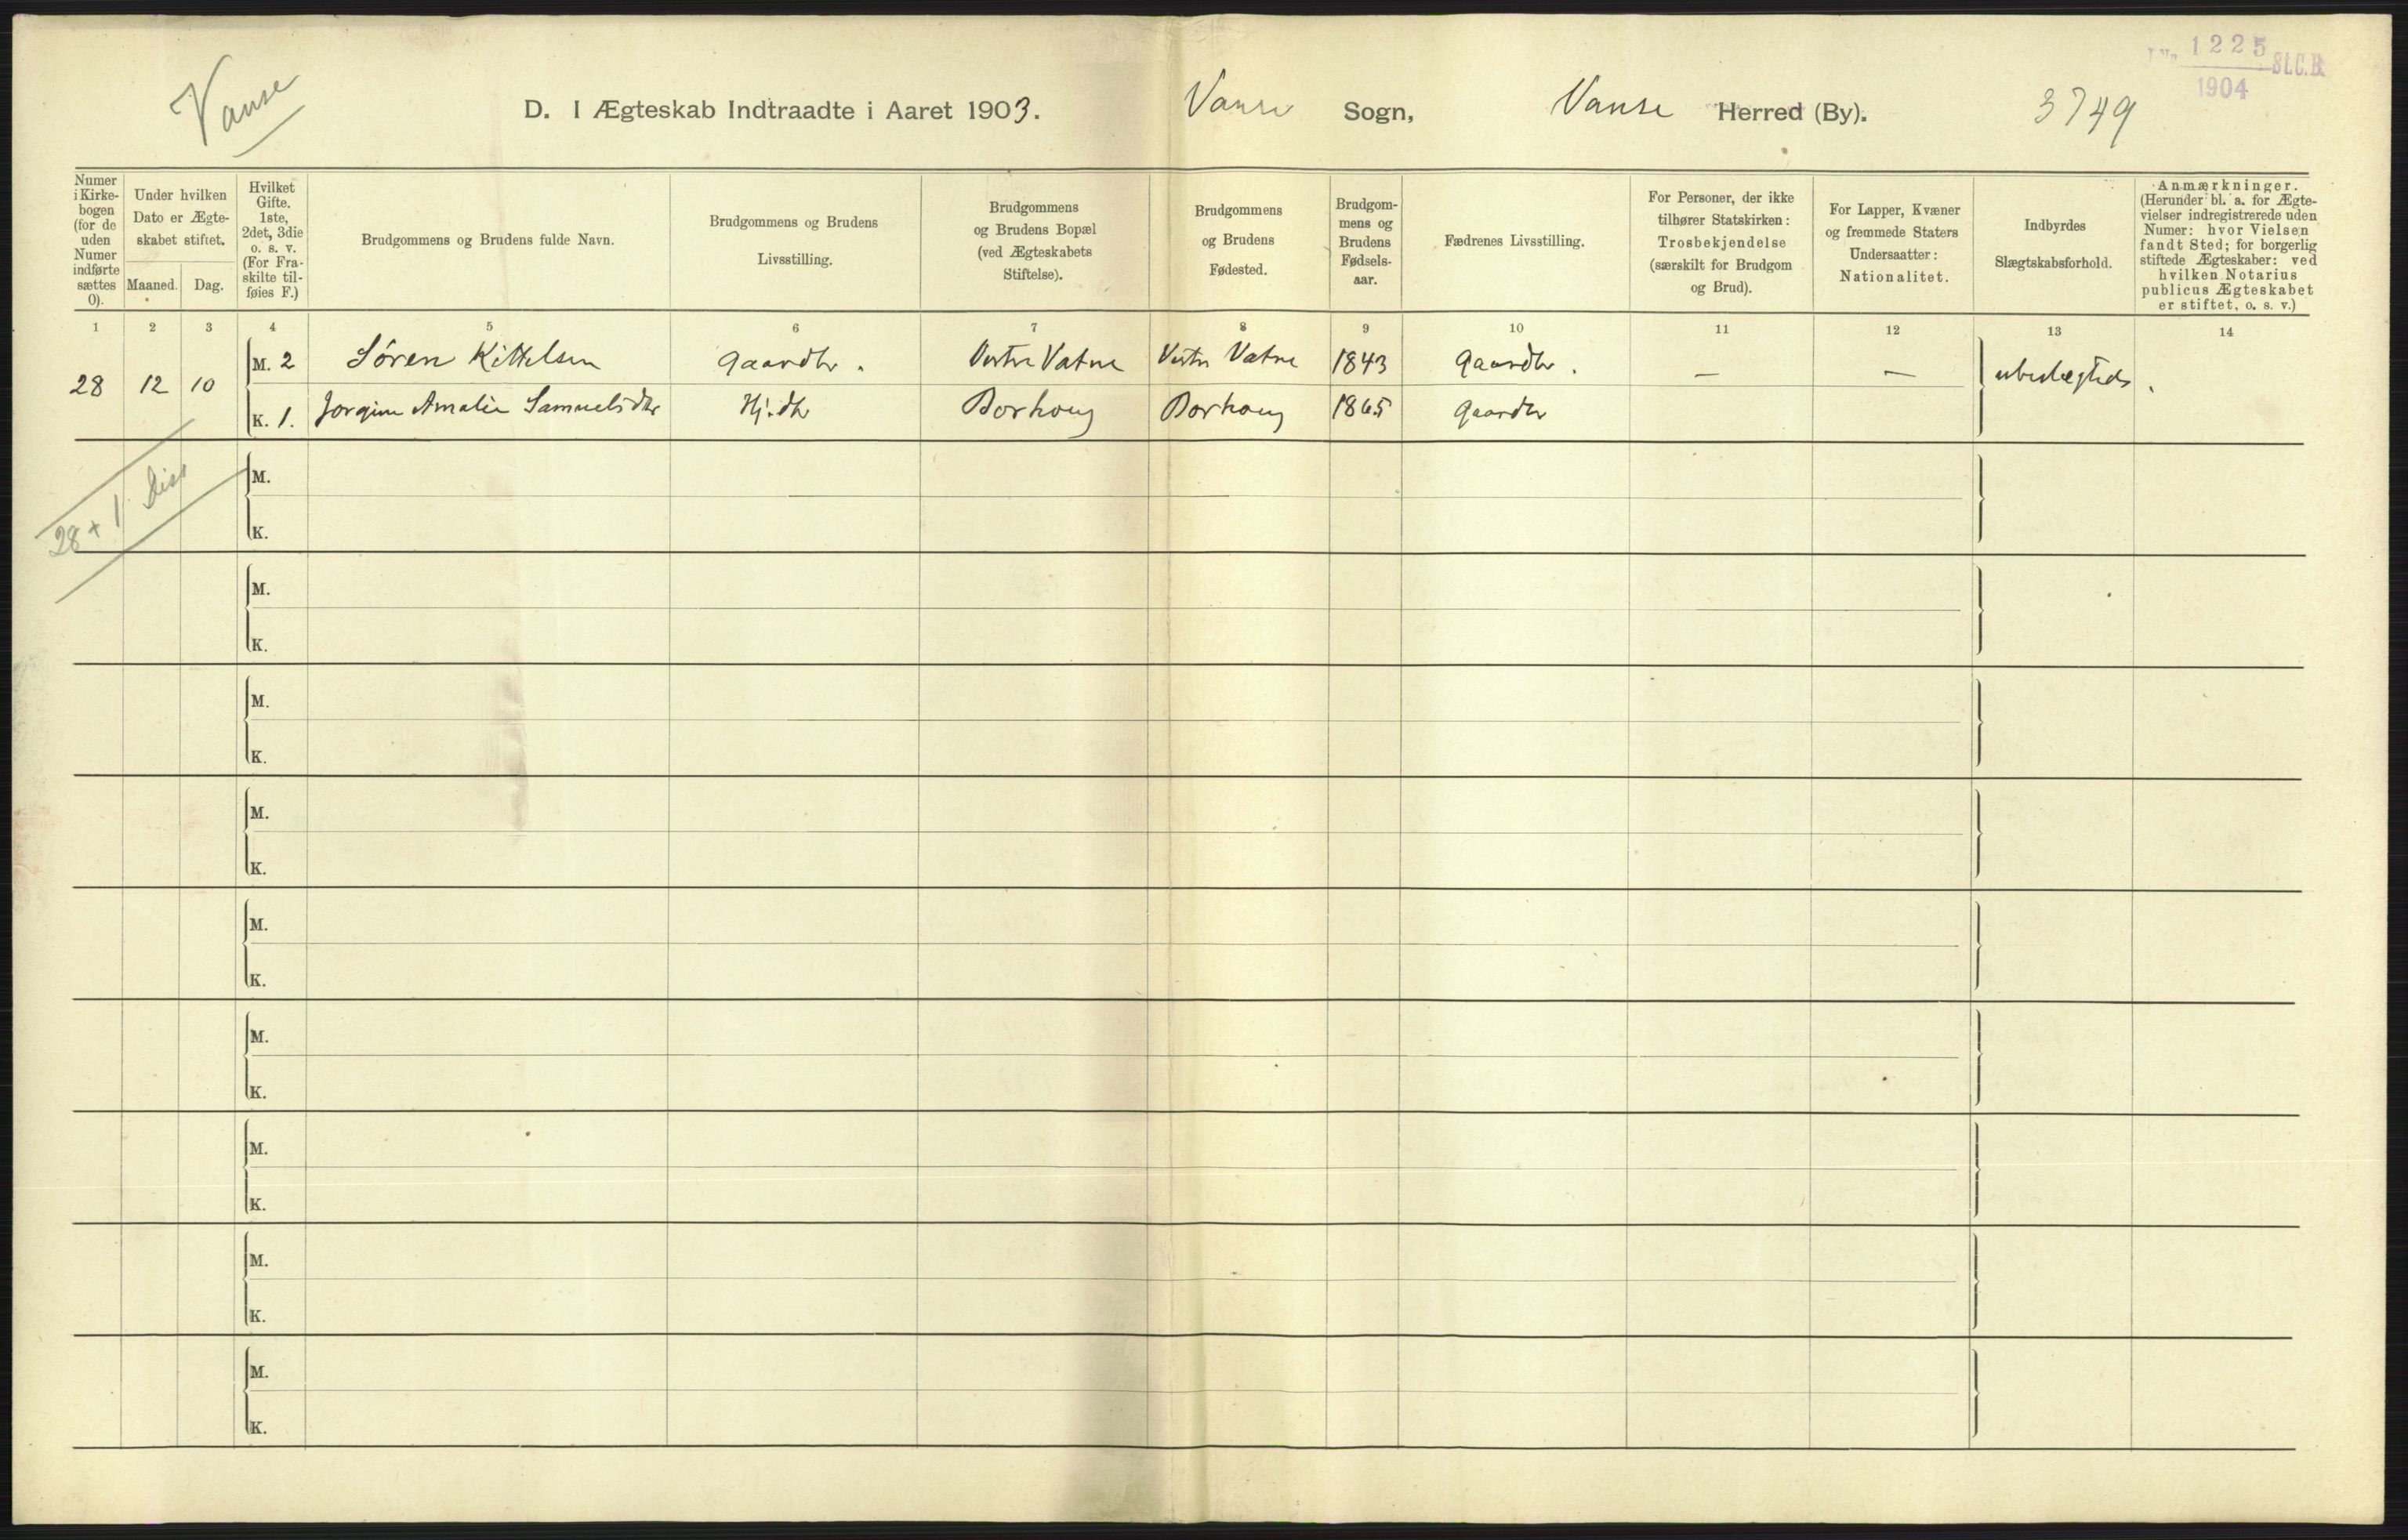 Vanse
D. I Ægteskab Indtraadte i Aaret 1903.
Vanse Sogn,
Vanse Herred (By).
3749
1225 St.C.B.
1904
Numer
i Kirke-
bogen
(for de
uden
Numer
indførte
sættes
0).
Under hvilken
Dato er Ægte-
skabet stiftet.
Maaned.
Dag.
Hvilket
Gifte.
1ste,
2det, 3die
o. s. v.
(For Fra-
skilte til-
føies F.)
Brudgommens og Brudens fulde Navn.
Brudgommens og Brudens
Livsstilling.
Brudgommens
og Brudens Bopæl
(ved Ægteskabets
Stiftelse).
Brudgommens
og Brudens
Fødested.
Brudgom-
mens og
Brudens
Fødsels-
aar.
Fædrenes Livsstilling.
For Personer, der ikke
tilhører Statskirken:
Trosbekjendelse
(særskilt for Brudgom
og Brud).
For Lapper, Kvæner
og fremmede Staters
Undersaatter:
Nationalitet.
Indbyrdes
Slægtskabsforhold.
Anmærkninger.
(Herunder bl. a. for Ægte-
vielser indregistrerede uden
Numer: hvor Vielsen
fandt Sted; for borgerlig
stiftede Ægteskaber: ved
hvilken Notarius
publicus Ægteskabet
er stiftet, o. s. v.)
1 2 3 4 5 6 7 8 9 10 11 12 13 14
28 12 10
M. 2 Søren Kittelsen Gaardbr. Vestre Vatne Vestre Vatne 1843 Gaardbr. — — ubeslægtede.
K. 1. Jorgine Amalie Samuelsdtr Hj. dtr Borhoug Borhoug 1865 Gaardbr
28 + 1
M.
K.
M.
K.
M.
K.
M.
K.
M.
K.
M.
K.
M.
K.
M.
K.
M.
K.